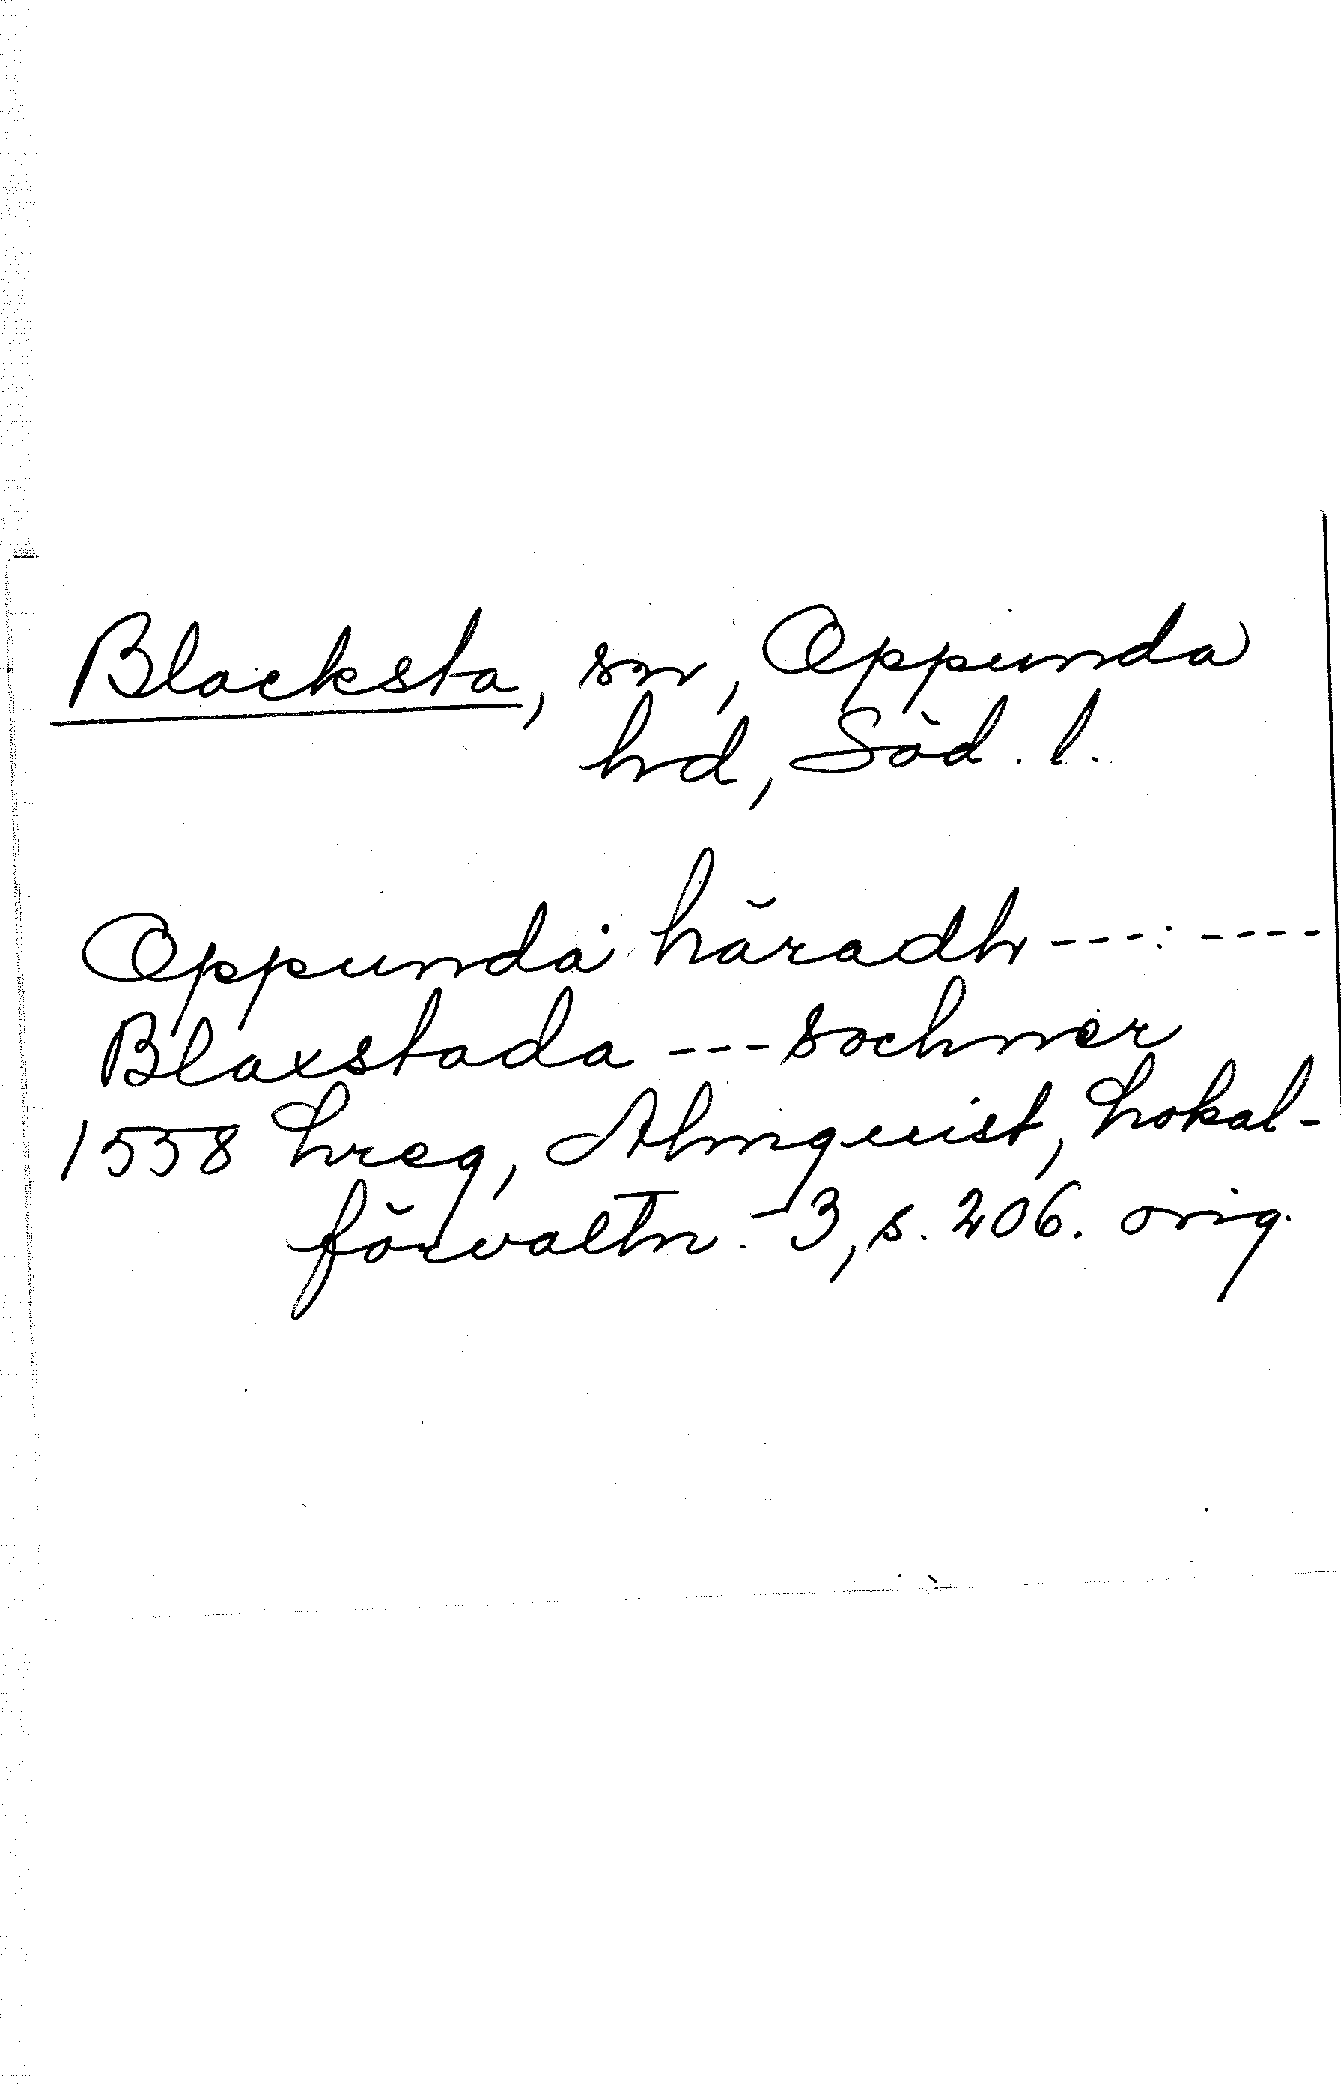 Blacksta, sn, Oppunda
hd, Söd. l.
Oppunda häradh --- ----
Blaxstada --- sochner
1558 hreg, Almquist, Lokal-
förvaltn. 3, s. 206. orig.